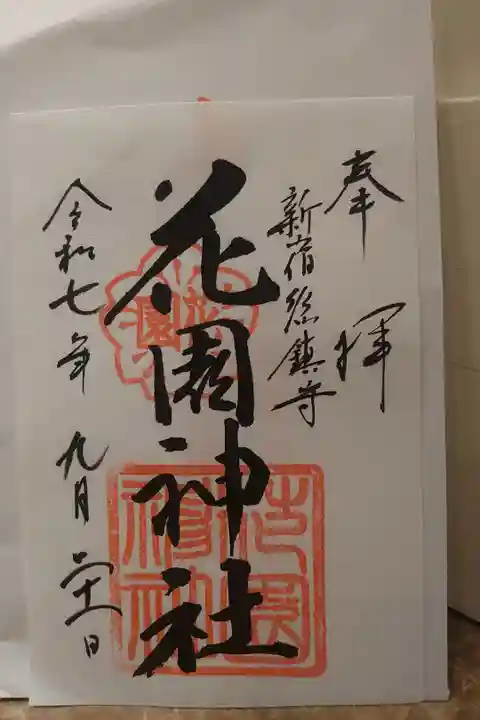 奉拝
新宿総鎮守
花園神社
令和七年九月二十一日